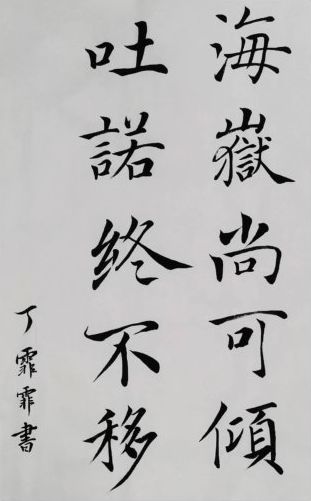 海嶽尚可傾
吐諾終不移
丁霏霏書